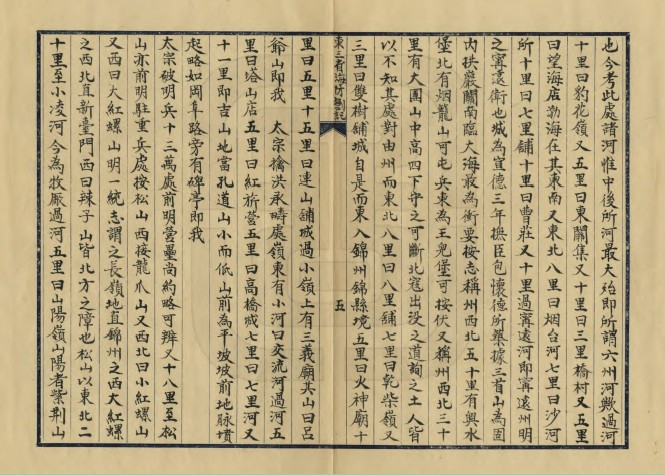 也今考此處諸河惟中後所河最大殆即所謂六州河歟過河
十里曰豹花嶺又五里曰東關集又十里曰三里橋村又五里
曰望海店渤海在其東南又東北八里曰烟台河七里曰沙河
所十里曰七里鋪十里曰曹莊又十里過寧遠河即寧遠州明
之寧遠衛也城為宣德三年撫臣包懷德所築據三首山為固
內拱嚴關南臨大海最為衝要按志稱州西北五十里有興水
堡北有烟籠山可屯兵東為王兒堡可按伏又稱州西北三十
里有大團山中高四下守之可斷北寇出沒之道詢之土人皆
以不知其處對由州而東北八里曰八里鋪七里曰乾柴嶺又
三里曰雙樹鋪城自是而東入錦州錦縣境五里曰火神廟十
東三省海防劄記
五
里曰五里十五里曰連山鋪城過小嶺上有三義廟其山曰呂
爺山即我 太宗擒洪承疇處嶺東有小河曰交流河過河五
里曰塔山店五里曰紅旂營五里曰高橋城七里曰七里河又
十一里即吉山地當孔道山小而低山前為平坡坡前地脉墳
起略如岡阜路旁有碑亭即我
太宗破明兵十三萬處前明營壘尚約略可辨又十八里至松
山亦前明駐重兵處按松山西接龍爪山又西北曰小紅螺山
又西曰大紅螺山明一統志謂之長嶺地直錦州之西大紅螺
之西北直新臺門西曰辣子山皆北方之障也松山以東北二
十里至小凌河今為牧厰過河五里曰山陽嶺山陽者紫荆山